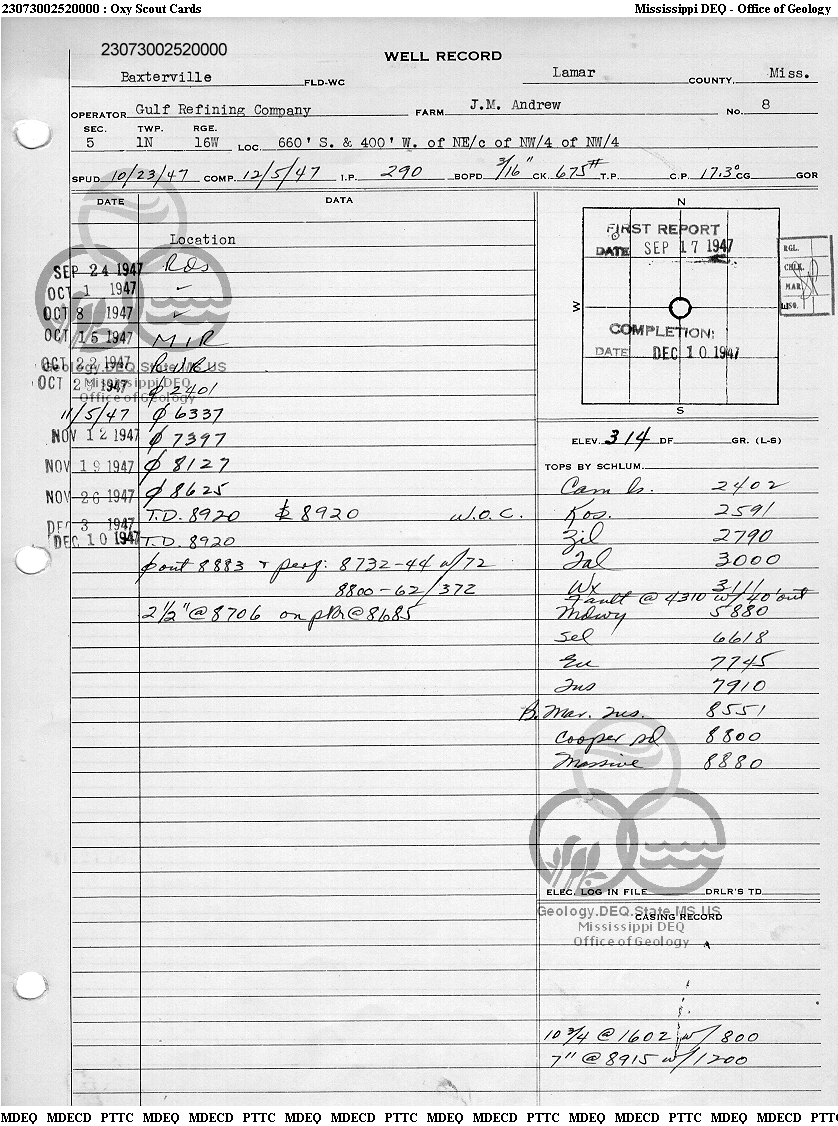 23073002520000 : Oxy Scout Cards Mississippi DEQ - Office of Geology
23073002520000
WELL RECORD
Baxterville FLD-WC Lamar COUNTY, Miss.
OPERATOR Gulf Refining Company FARM J.M. Andrew No. 8
SEC. TWP. RGE.
5 1N 16W LOC. 660' S. & 400' W. of NE/c of NW/4 of NW/4
SPUD 10/23/47 COMP. 12/5/47 I.P. 290 BOPD 3/16" CK 675# T.P. C.P. 17.3° CG GOR
DATE DATA
Location
SEP 24 1947 Rds
OCT 1 1947 ✓
OCT 8 1947 ✓
OCT 15 1947 MIR
OCT 22 1947 RUR
OCT 29 1947 ϕ 2401
11/5/47 ϕ 6337
NOV 12 1947 ϕ 7397
NOV 19 1947 ϕ 8127
NOV 26 1947 ϕ 8625
DEC 3 1947 T.D. 8920 8920 W.O.C.
DEC 10 1947 T.D. 8920
ϕ out 8883 & perf: 8732-44 w/72
8800-62/372
2 1/2" @ 8706 on pkr @ 8685
Geology.DEQ.State.MS.US
Mississippi DEQ
Office of Geology
N
FIRST REPORT
DATE SEP 17 1947
W
COMPLETION:
DATE DEC 10 1947
S
RGL.
CHLK.
MAR.
MSO.
ELEV. 314 DF GR. (L-S)
TOPS BY SCHLUM.
Cam ls. 2402
Kos. 2591
Zil 2790
Tal 3000
Wx 3111
Fault @ 4310 w/ 40' out
Mdwy 5880
Sel 6618
Eu 7745
Tus 7910
B. Mar. Tus. 8551
Cooper sd 8800
Massive 8880
ELEC. LOG IN FILE DRLR'S TD
Geology.DEQ.State.MS.US
CASING RECORD
Mississippi DEQ
Office of Geology
10 3/4 @ 1602 w/ 800
7" @ 8915 w/ 1200
MDEQ MDECD PTTC MDEQ MDECD PTTC MDEQ MDECD PTTC MDEQ MDECD PTTC MDEQ MDECD PTTC MDEQ MDECD PTTC